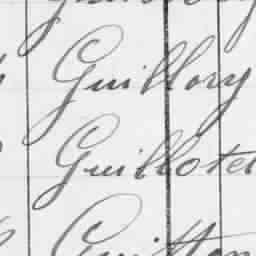 Guillory
Guillotel
Guitton